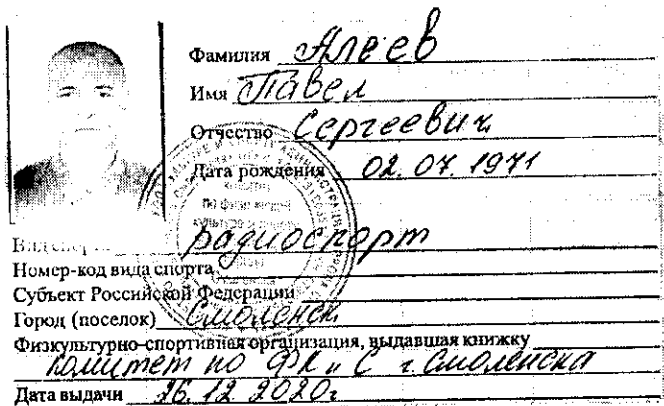 Фамилия Алеев
Имя Павел
Отчество Сергеевич
Дата рождения 02.07.1971
Вид спорта радиоспорт
Номер-код вида спорта
Субъект Российской Федерации
Город (поселок) Смоленск
Физкультурно-спортивная организация, выдавшая книжку
Комитет по ФК и С г. Смоленска
Дата выдачи 26.12.2020г